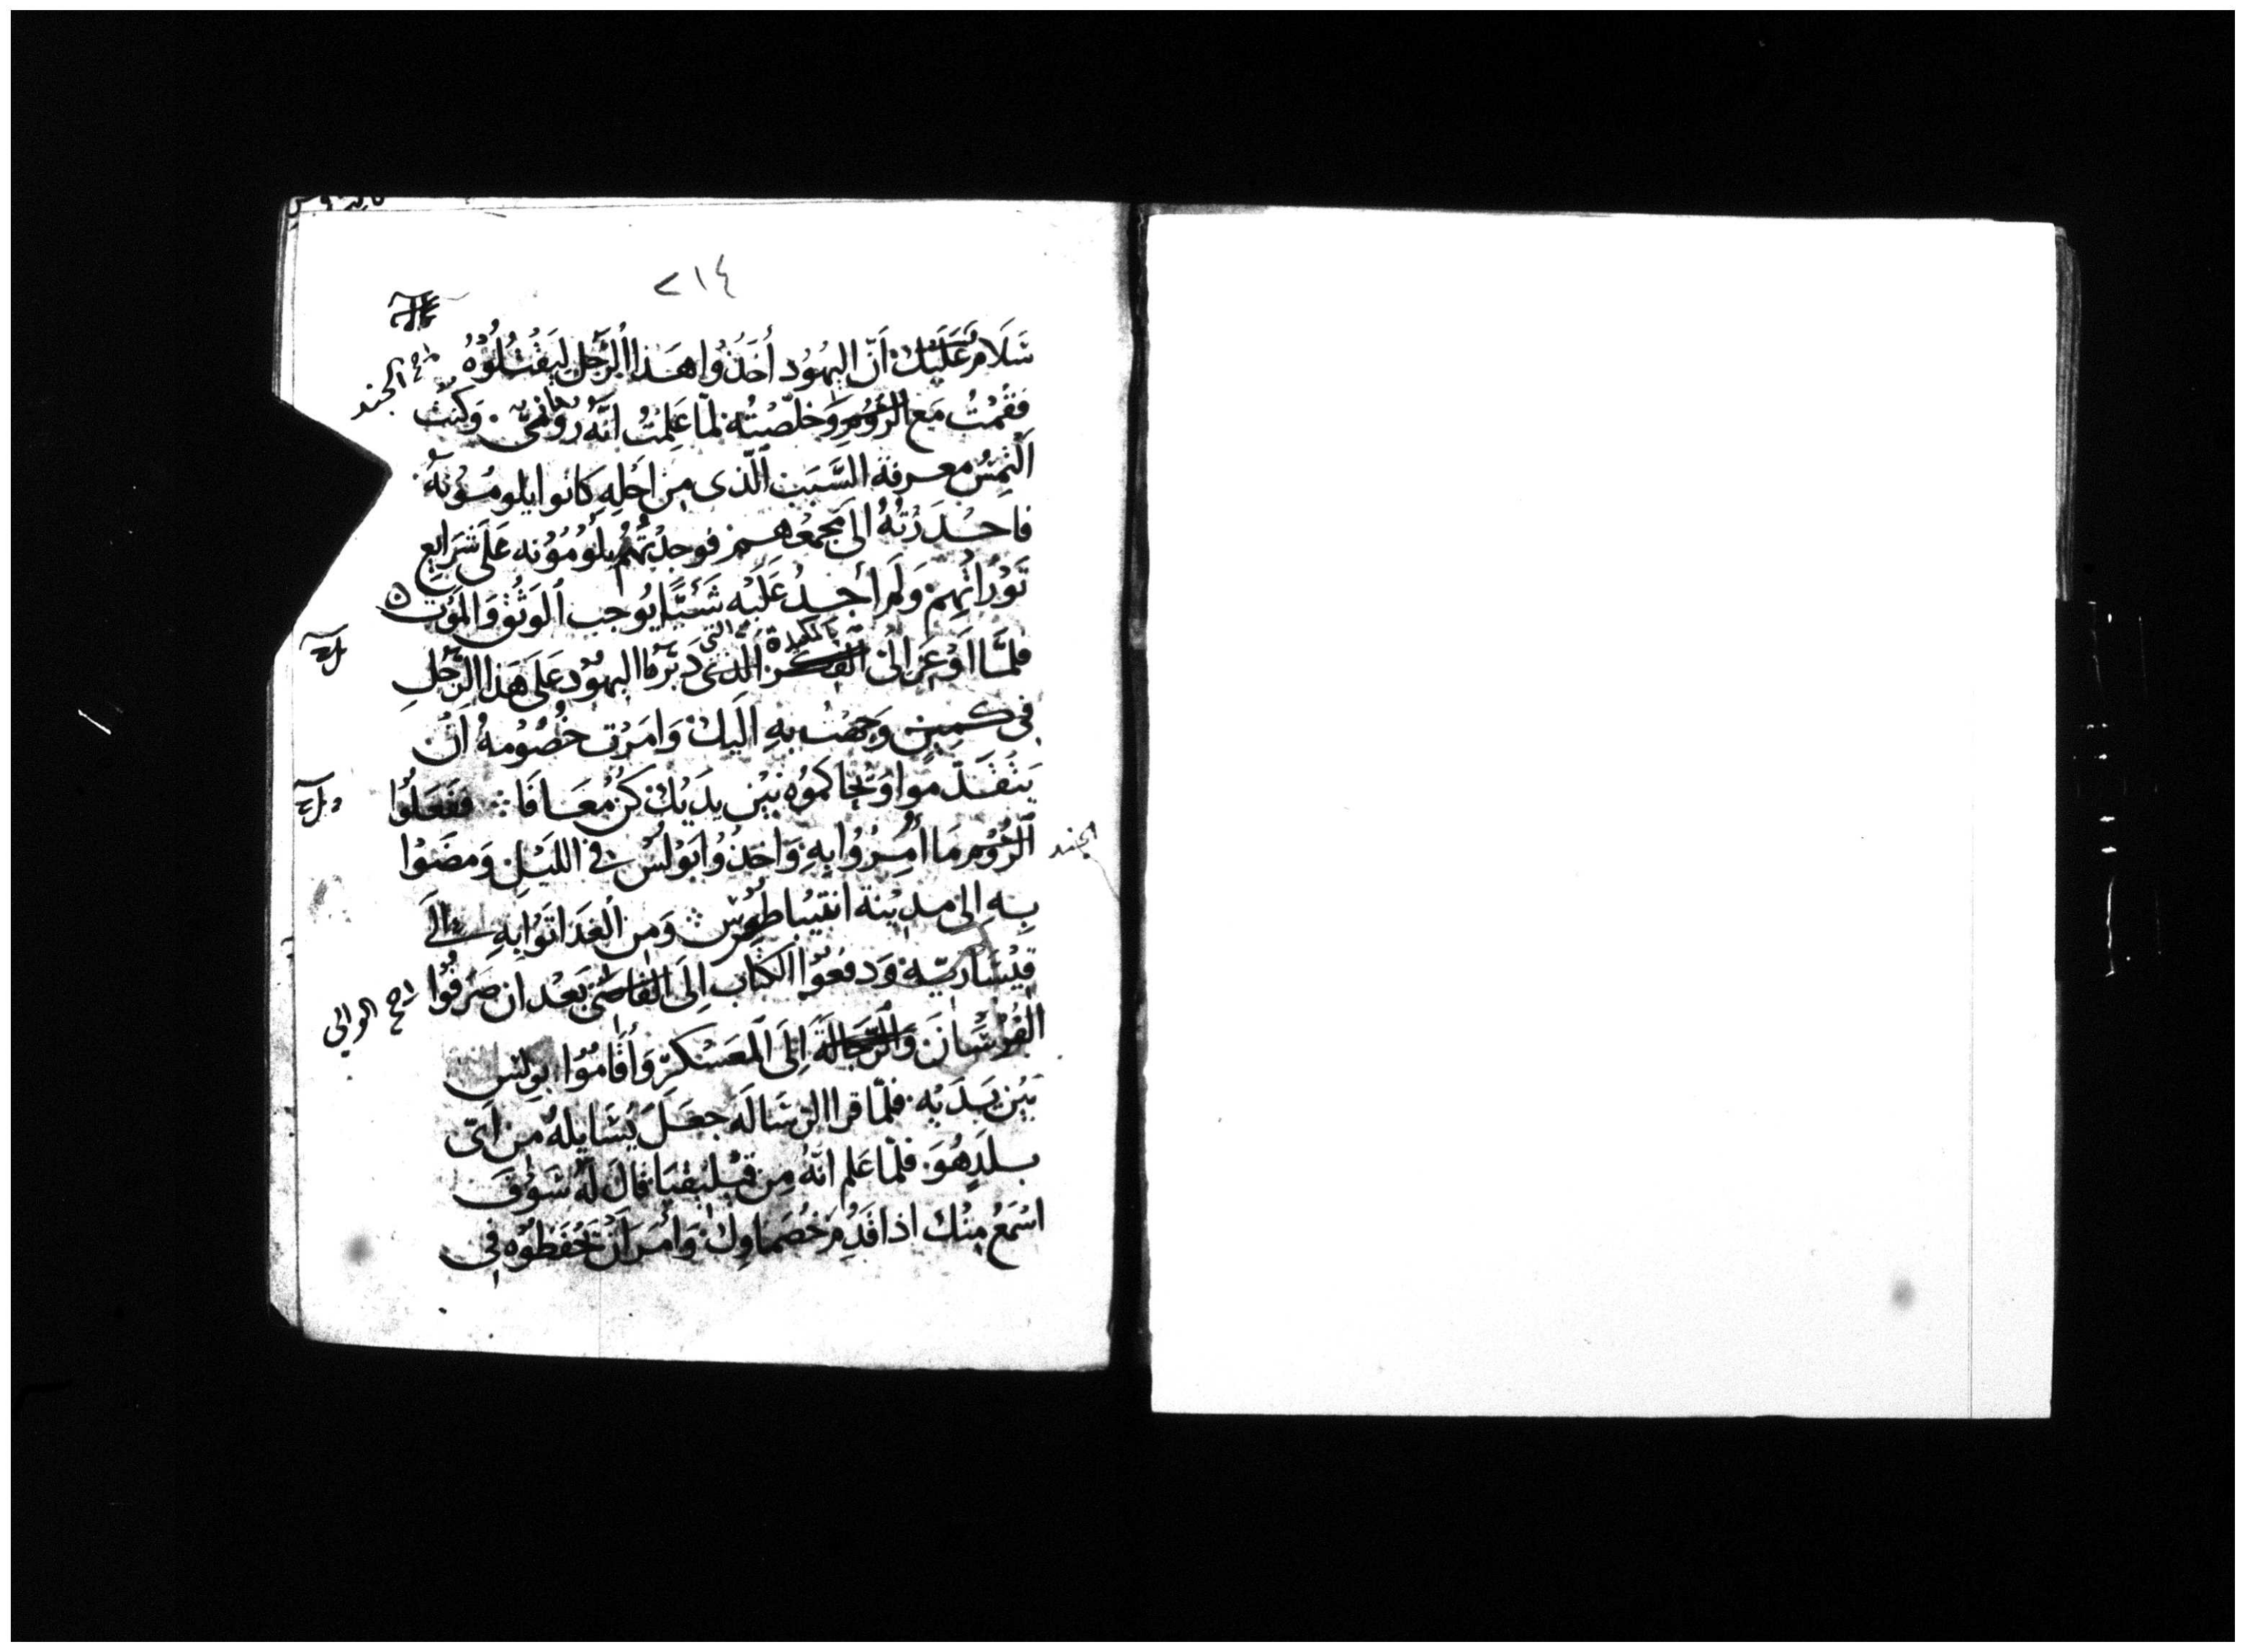 ٢١٤
سَلَامٌ عَلَيْكَ. أنّ اليَهُود أخَذُوا هَذا الرَّجُل ليَقْتُلُوْهُ
صح الجند
فَقُمْتُ مَع الرُّومِ وَخلّصْتُه لمّا عَلِمْتُ انَّهُ رُومَانِيّ. وَكنْت
ألتمِسُ معرفة السَّبَب الّذى مِن اجْلِهِ كَانوا يلومُونَهُ.
فاحْدَرْتُهُ الى مجْمَعهم فوجدْتُهُمْ يَلُومُوْنه عَلَى شرَايع
تَوْرَاتِهِم. وَلَم أجِدُ عَلَيْه شَيْئًا يُوجب الوَثقَ وَالمَوْت ٥
فلمَّا اوْعِزَ الىّ الفكر الّذى دَبّرهَا اليَهُوْد عَلَى هَذا الرّجُلِ
بالمكيدة التى
فى كمِينٍ وَجهْت بهِ اليكَ وَامَرْت خُصُومهُ أن
يَتَقَدّموا وَيحاكمُوْه بَيْن يدَيْكَ كُن مُعَافَا ∴ ففعَلُوا
الرُّوْم مَا أُمِرُوا بهِ وَاخَذُوا بَوْلُسْ فى الليْلِ وَمضَوْا
الجند
بِه الى مدِيْنة انتيباطرس ∴ وَمِن الْغدَ اتَوْا بهِ الَى
قيْسَاريّة وَدفعُوْا الكتَاب الَى القاضى بَعْد ان صَرَفُوْا
صح الوالى
الفُرْسَانَ وَالرَّجَّالَة الَى المعَسْكرِ وَأقَامُوْا بولس
بَيْن يَدَيْه. فلمّا قرا الرسَالَة جعَلَ يُسَايلهُ من اىّ
بلَدٍ هُوَ. فلمّا عَلم انّهُ مِن قيلِيقيَا قالَ لهُ سَوْفَ
اسْمَعُ مِنْك اذا قَدِمَ خُصَماوكَ. وَأمَرَ أنْ يَحْفَظُوْه فى